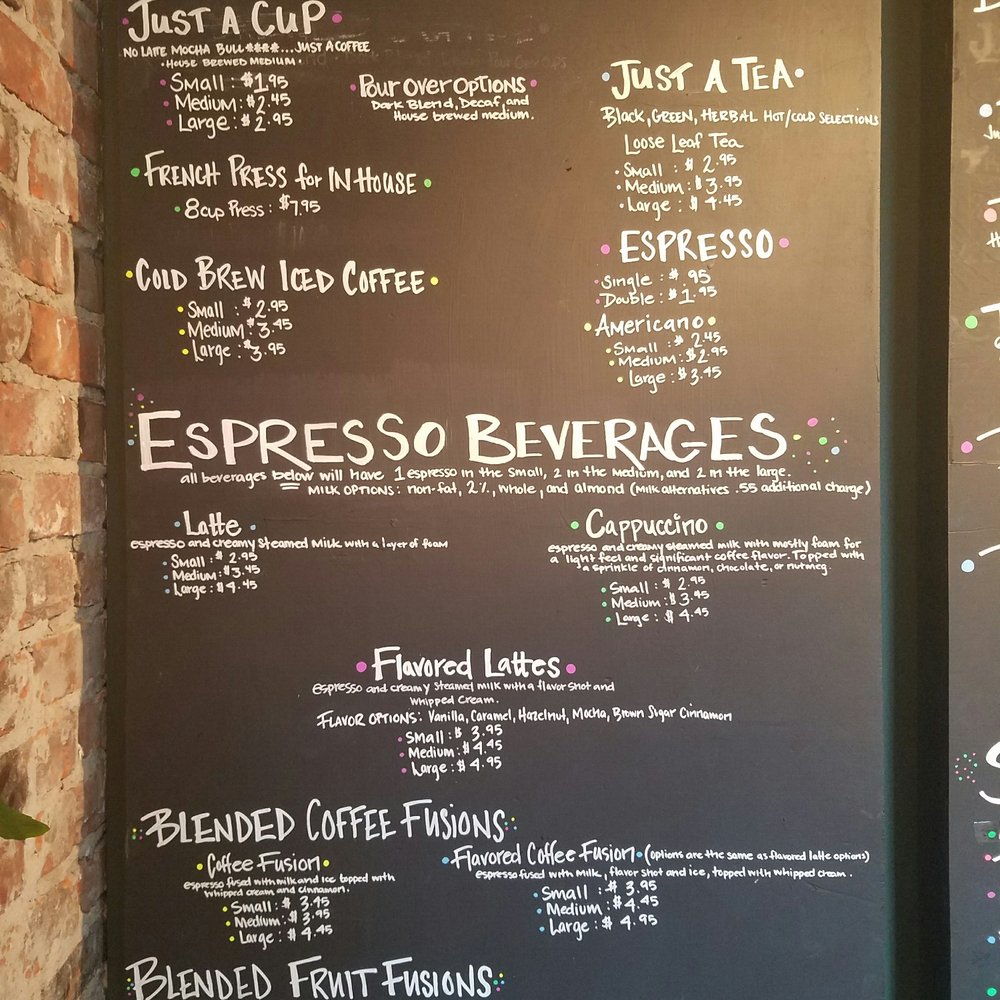 JUST A CUP
NO LATTE MOCHA BULL****...JUST A COFFEE
• HOUSE BREWED MEDIUM •
Small : $1.95
Medium : $2.45
Large : $2.95
• Pour Over Options •
Dark Blend, Decaf, and
House brewed medium.
• JUST A TEA •
Black, GREEN, HERBAL HOT/COLD SELECTIONS
Loose Leaf Tea
• Small : $2.95
• Medium : $3.95
• Large : $4.45
• FRENCH PRESS for IN HOUSE •
• 8cup Press : $7.95
• ESPRESSO •
• Single : $.95
• Double : $1.95
• COLD BREW ICED COFFEE •
• Small : $2.95
• Medium : $3.45
• Large : $3.95
• Americano •
• Small : $2.45
• Medium : $2.95
• Large : $3.45
ESPRESSO BEVERAGES
all beverages below will have 1 espresso in the small, 2 in the medium, and 2 in the large.
MILK OPTIONS: non-fat, 2%, whole, and almond (Milk alternatives .55 additional charge)
• Latte •
espresso and creamy steamed milk with a layer of foam
• Small : $2.95
• Medium : $3.45
• Large : $4.45
• Cappuccino •
espresso and creamy steamed milk with mostly foam for
a light feel and significant coffee flavor. Topped with
a sprinkle of cinnamon, chocolate, or nutmeg.
• Small : $2.95
• Medium : $3.95
• Large : $4.45
• Flavored Lattes •
espresso and creamy steamed milk with a flavor shot and
whipped cream.
FLAVOR OPTIONS: Vanilla, Caramel, Hazelnut, Mocha, Brown Sugar Cinnamon
• Small : $3.95
• Medium : $4.45
• Large : $4.95
BLENDED COFFEE FUSIONS
• Coffee Fusion •
espresso fused with milk and ice topped with
whipped cream and cinnamon.
• Small : $3.45
• Medium : $3.95
• Large : $4.45
• Flavored Coffee Fusion • (options are the same as flavored latte options)
espresso fused with milk, flavor shot and ice, topped with whipped cream.
• Small : $3.95
• Medium : $4.45
• Large : $4.95
BLENDED FRUIT FUSIONS